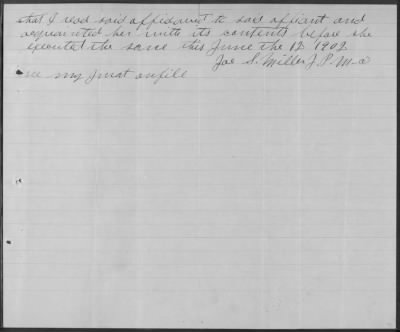 that I read said affidavit to said affiant and
acquainted her with its contents before she
executed the same this June the 12 1902
Joe S. Miller J. P. M-a
see my jurat on file